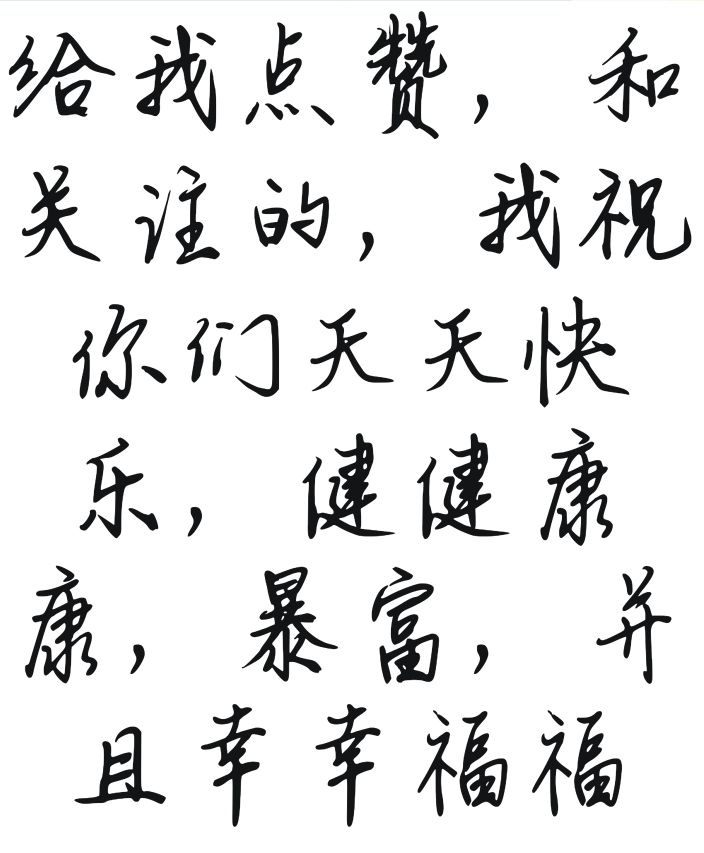 给我点赞， 和
关注的， 我祝
你们天天快
乐， 健健康
康， 暴富， 并
且幸幸福福